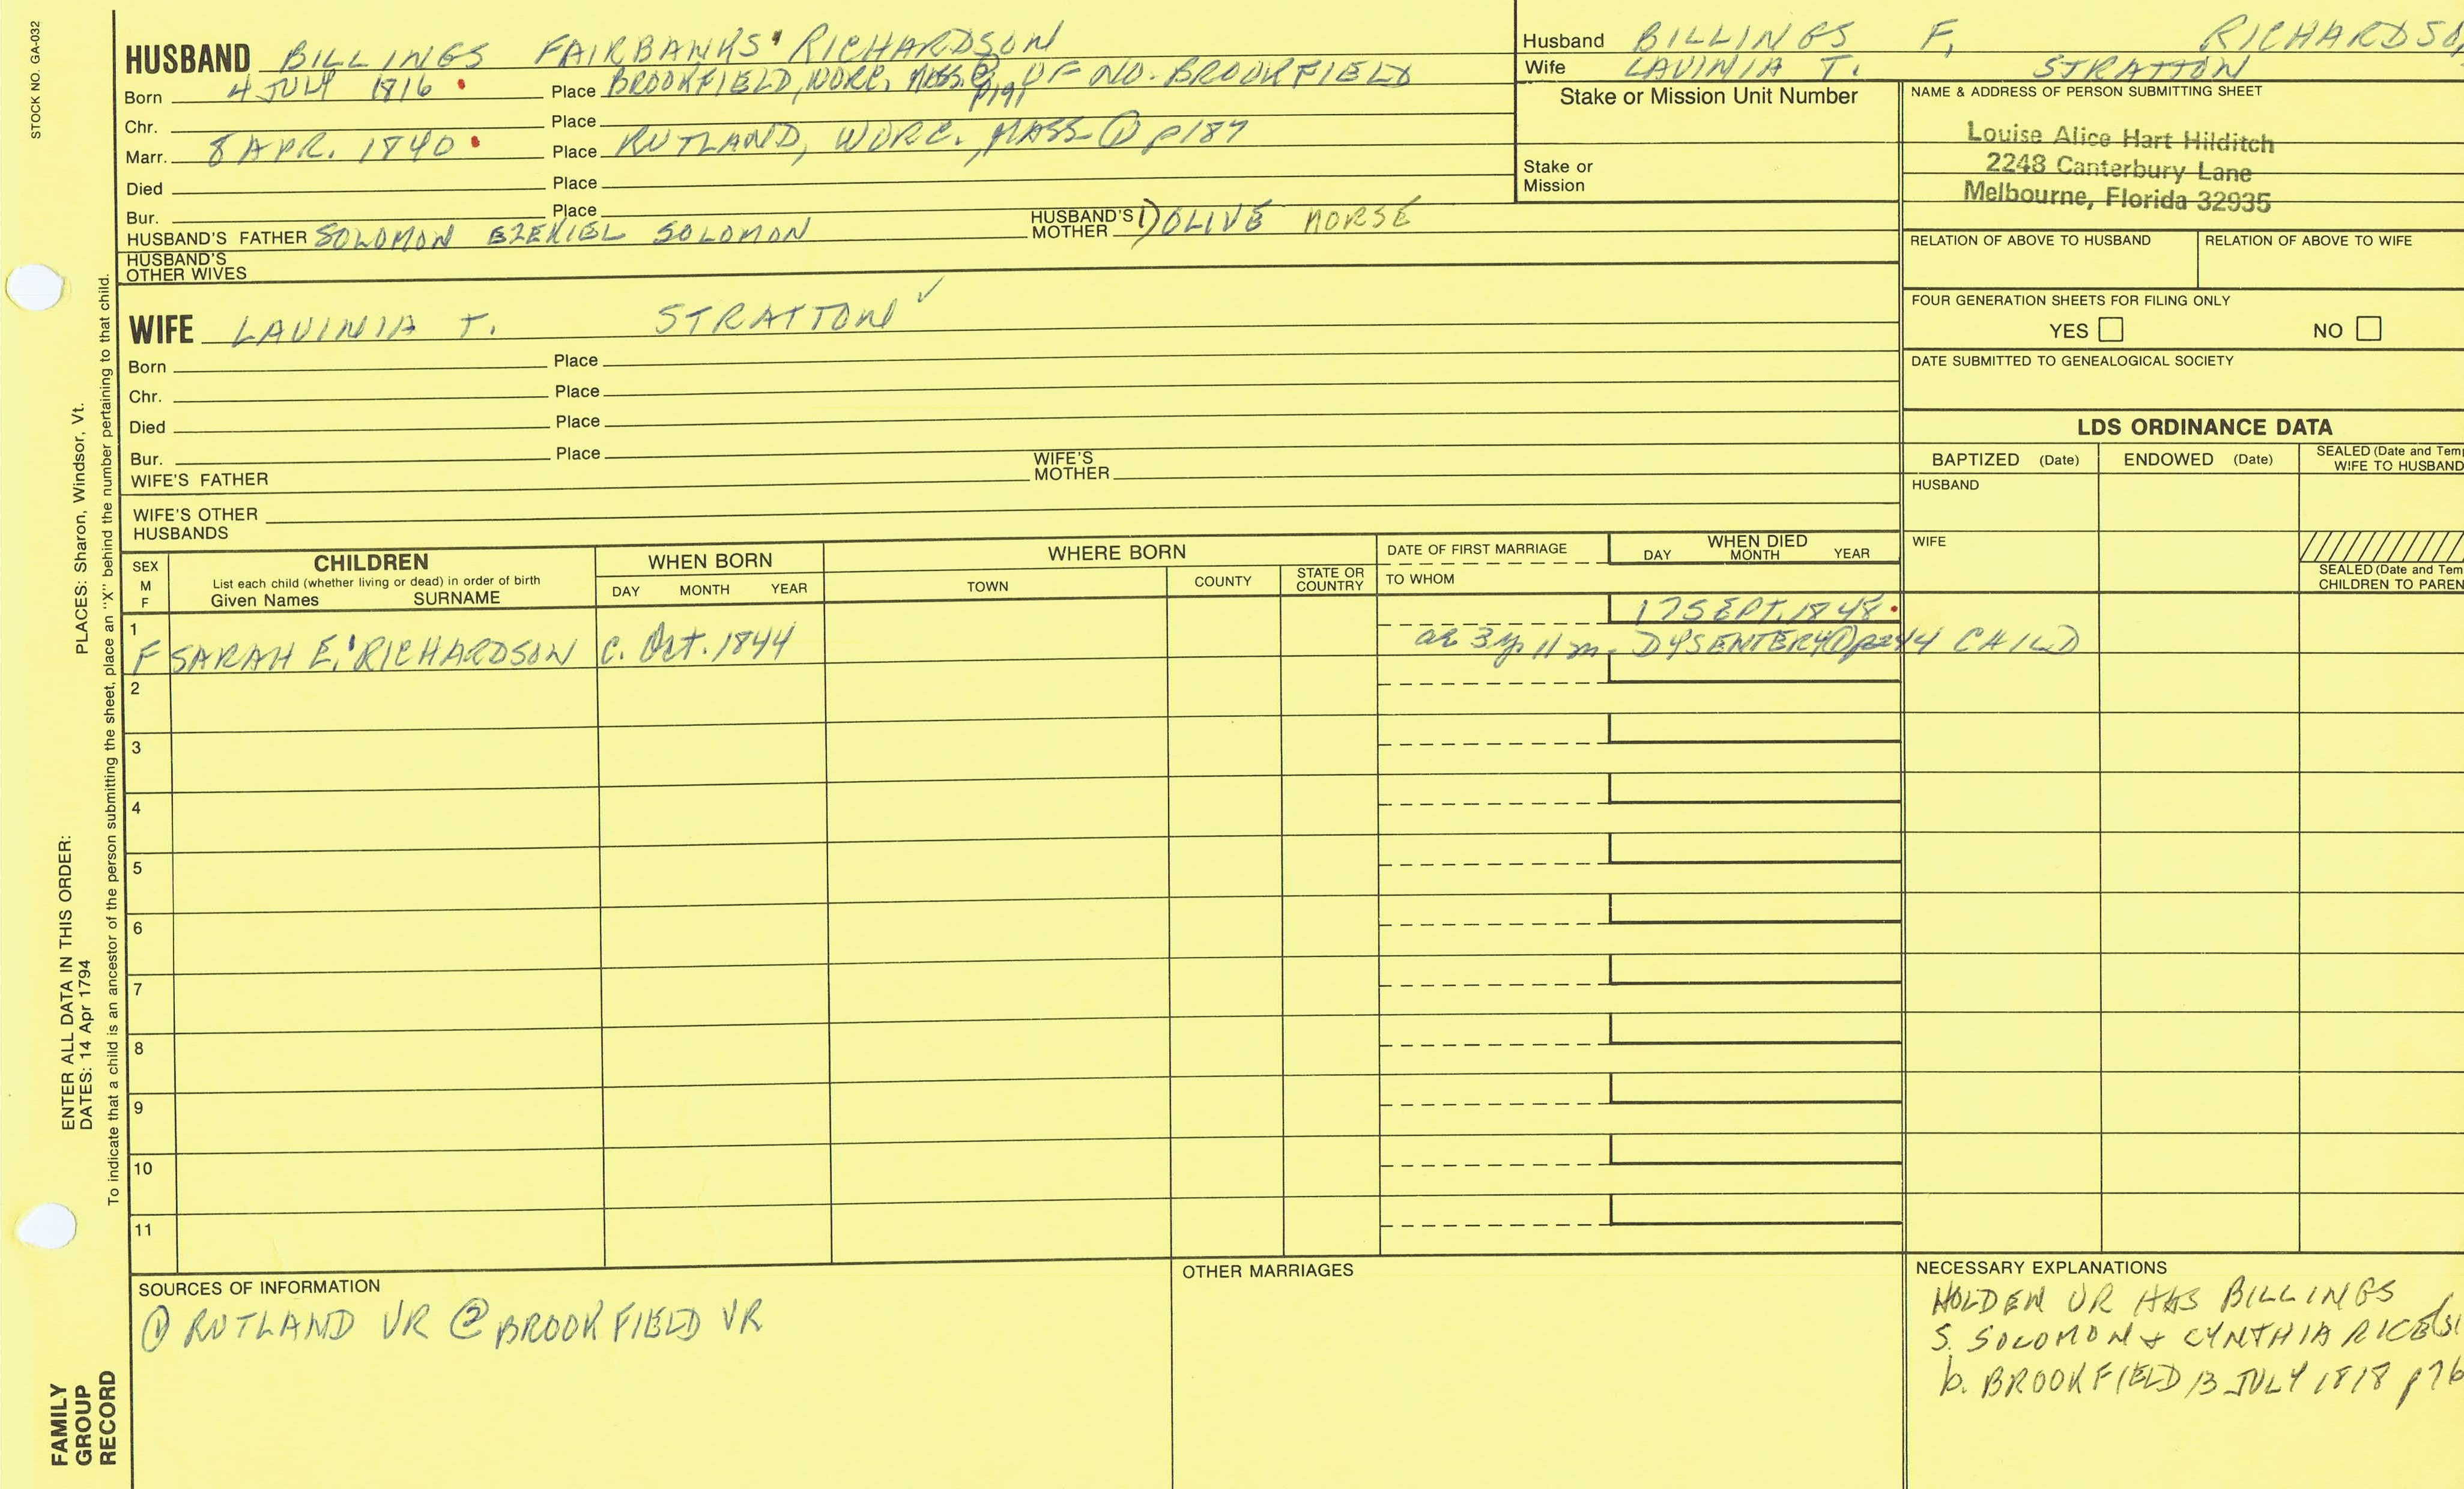 STOCK NO. GA-032
HUSBAND BILLINGS FAIRBANKS' RICHARDSON
Born 4 JULY 1816 Place BROOKFIELD, WORC, MASS. ② p191 OF NO. BROOKFIELD
Chr. Place
Marr. 8 APR. 1840 Place RUTLAND, WORC., MASS ① p187
Died Place
Bur. Place
HUSBAND'S FATHER SOLOMON EZEKIEL SOLOMON HUSBAND'S MOTHER 1) OLIVE MORSE
HUSBAND'S OTHER WIVES
WIFE LAVINIA T. STRATTON ✓
Born Place
Chr. Place
Died Place
Bur. Place
WIFE'S FATHER WIFE'S MOTHER
WIFE'S OTHER HUSBANDS
Husband BILLINGS F. RICHARDSO
Wife LAVINIA T. STRATTON
Stake or Mission Unit Number
Stake or Mission
NAME & ADDRESS OF PERSON SUBMITTING SHEET
Louise Alice Hart Hilditch
2248 Canterbury Lane
Melbourne, Florida 32935
RELATION OF ABOVE TO HUSBAND RELATION OF ABOVE TO WIFE
FOUR GENERATION SHEETS FOR FILING ONLY
YES NO
DATE SUBMITTED TO GENEALOGICAL SOCIETY
LDS ORDINANCE DATA
BAPTIZED (Date) ENDOWED (Date) SEALED (Date and Tem WIFE TO HUSBAND
HUSBAND
WIFE
SEALED (Date and Tem CHILDREN TO PAREN
SEX M F CHILDREN WHEN BORN WHERE BORN DATE OF FIRST MARRIAGE WHEN DIED
List each child (whether living or dead) in order of birth
Given Names SURNAME DAY MONTH YEAR TOWN COUNTY STATE OR COUNTRY TO WHOM DAY MONTH YEAR
17 SEPT. 1848
1 F SARAH E.' RICHARDSON c. Oct. 1844 ae 3y 11 m. DYSENTERY ① CHILD
2
3
4
5
6
7
8
9
10
11
SOURCES OF INFORMATION
① RUTLAND VR ② BROOKFIELD VR
OTHER MARRIAGES
NECESSARY EXPLANATIONS
HOLDEN VR HAS BILLINGS
S. SOLOMON & CYNTHIA RICE
b. BROOKFIELD 13 JULY 1818 p76
ENTER ALL DATA IN THIS ORDER:
DATES: 14 Apr 1794
PLACES: Sharon, Windsor, Vt.
To indicate that a child is an ancestor of the person submitting the sheet, place an "X" behind the number pertaining to that child.
FAMILY
GROUP
RECORD